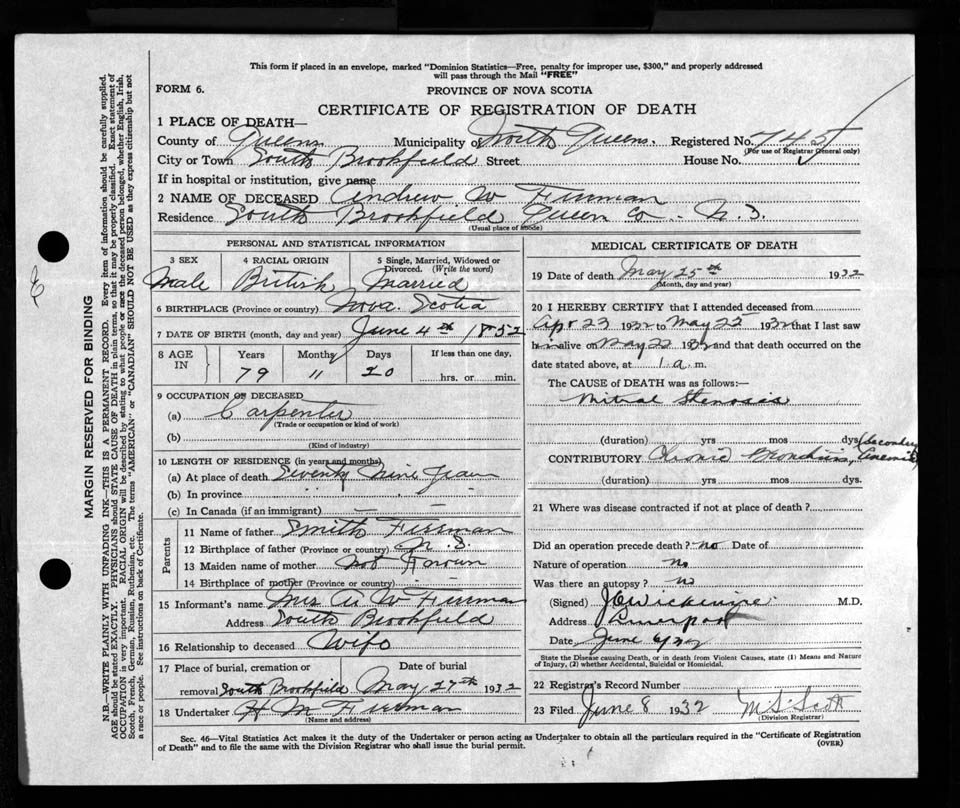 This form if placed in an envelope, marked "Dominion Statistics—Free, penalty for improper use, $300," and properly addressed
will pass through the Mail "FREE"
FORM 6.
PROVINCE OF NOVA SCOTIA
CERTIFICATE OF REGISTRATION OF DEATH
1 PLACE OF DEATH—
County of Queens Municipality of North Queens. Registered No. 745
(For use of Registrar General only)
City or Town South Brookfield Street House No.
If in hospital or institution, give name
2 NAME OF DECEASED Andrew W
Residence South Brookfield Queen Co. N.S.
(Usual place of abode)
PERSONAL AND STATISTICAL INFORMATION
3 SEX 4 RACIAL ORIGIN 5 Single, Married, Widowed or
Divorced. (Write the word)
Male British Married
6 BIRTHPLACE (Province or country) Nova Scotia
7 DATE OF BIRTH (month, day and year) June 4th 1852
8 AGE IN Years Months Days If less than one day,
79 11 20 hrs. or min.
9 OCCUPATION OF DECEASED
(a) Carpenter
(Trade or occupation or kind of work)
(b)
(Kind of industry)
10 LENGTH OF RESIDENCE (in years and months)
(a) At place of death Seventy Nine Years
(b) In province
(c) In Canada (if an immigrant) — —
Parents
11 Name of father Smith
12 Birthplace of father (Province or country) N. S.
13 Maiden name of mother Not Known
14 Birthplace of mother (Province or country)
15 Informant's name Mrs A W
Address South Brookfield
16 Relationship to deceased Wife
17 Place of burial, cremation or Date of burial
removal South Brookfield May 27th 1932
18 Undertaker H M
(Name and address)
MEDICAL CERTIFICATE OF DEATH
19 Date of death May 25th 1932
(Month, day and year)
20 I HEREBY CERTIFY that I attended deceased from
Apr 23 1932 to May 25 1932 that I last saw
him alive on May 22 1932 and that death occurred on the
date stated above, at 1 a. m.
The CAUSE of DEATH was as follows:—
Mitral Stenosis
(duration) yrs mos dys.
CONTRIBUTORY Chronic Bronchitis, (Secondary Anemia)
(duration) yrs. mos. dys.
21 Where was disease contracted if not at place of death?
Did an operation precede death? no Date of
Nature of operation no
Was there an autopsy? no
(Signed) M.D.
Address Liverpool
Date June 6/32
State the Disease causing Death, or in death from Violent Causes, state (1) Means and Nature
of Injury, (2) whether Accidental, Suicidal or Homicidal.
22 Registrar's Record Number
23 Filed June 8 1932 M S Scott
(Division Registrar)
Sec. 46—Vital Statistics Act makes it the duty of the Undertaker or person acting as Undertaker to obtain all the particulars required in the "Certificate of Registration
of Death" and to file the same with the Division Registrar who shall issue the burial permit.
(OVER)
MARGIN RESERVED FOR BINDING
N.B.—WRITE PLAINLY WITH UNFADING INK—THIS IS A PERMANENT RECORD. Every item of information should be carefully supplied.
AGE should be stated EXACTLY. PHYSICIANS should STATE CAUSE OF DEATH in plain terms, so that it may be properly classified. Exact statement of
OCCUPATION is very important. RACIAL ORIGIN will be described by stating to what people or race the deceased person belonged, whether English, Irish,
Scotch, French, German, Russian, Ruthenian, etc. The terms "AMERICAN" or "CANADIAN" SHOULD NOT BE USED as they express citizenship but not
a race or people. See instructions on back of Certificate.